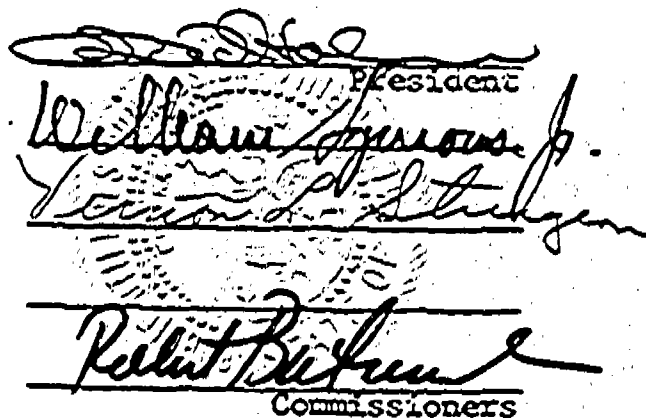 President
William Symons Jr.
Vernon L. Sturgeon
Robert
Commissioners